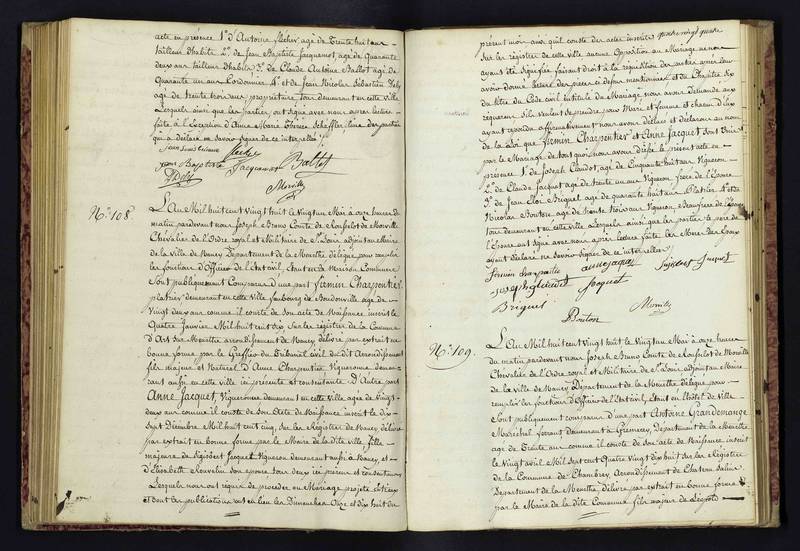 acte en présence 1º d'Antoine Flicher agé de Trente huit ans
tailleur d'habits 2º de Jean Baptiste Jacquemot agé de Quarante
deux ans tailleur d'habits 3º de Claude Antoine Ballot agé de
Quarante un ans Cordonnier 4º et de Jean Nicolas Sébastien Dely
agé de trente trois ans propriétaire tous demeurant en cette ville
Lesquels ainsi que les parties ont signé avec nous après lecture
faite à l'exception d'Anne Marie Thérèse Scheffler l'une des parties
qui a déclaré ne savoir signer de ce interpellée
Jean Baptiste
Jacquemot
Ballot
Dely
Morville
Nº 108
L'an Mil huit cent vingt huit le vingt un Mai à onze heures du
matin pardevant nous Joseph Bruno Comte de Morville
Chevalier de l'Ordre royal et Militaire de St Louis adjoint au Maire
de la ville de Nancy Département de la Meurthe délégué pour remplir
les fonctions d'Officier de l'Etat civil, Etant en la Maison Commune
Sont publiquement Comparus d'une part Firmin Charpentier
plâtrier demeurant en cette ville faubourg de Boudonville agé de
Vingt deux ans comme il conste de son acte de Naissance inscrit le
Quatre Janvier Mil huit cent six sur les registres de la Commune
d'Art sur Meurthe arrondissement de Nancy délivré par extrait en
bonne forme par le Greffier du Tribunal civil du dit Arrondissement
fils majeur et Naturel d'Anne Charpentier Vigneronne demeu-
rant aussi en cette ville ici présente et consentante D'autre part
Anne Jacquet, Vigneronne demeurant en cette ville agée de vingt
deux ans comme il conste de son Acte de Naissance inscrit le dix
sept Décembre Mil huit cent cinq, sur les Registres de Nancy délivré
par extrait en bonne forme par le Maire de la dite ville, fille
majeure de Sigisbert Jacquet Vigneron demeurant aussi à Nancy et
d'Elisabeth Louvelin son épouse tous deux ici présens et consentans
Lesquels nous ont requis de procéder au Mariage projeté entr'eux
et dont les publications ont eu lieu les Dimanches Onze et dix huit du
présent mois ainsi qu'il conste des actes inscrits
sur les registres de cette ville aucune Opposition au Mariage ne nous
ayant été signifiée faisant droit à la réquisition des parties après leur
avoir donné lecture des pièces ci dessus mentionnées et du Chapitre Six
du titre du Code civil intitulé du Mariage, nous avons demandé aux
requérans s'ils veulent se prendre pour Mari et femme et chacun d'Eux
ayant répondu affirmativement nous avons déclaré et déclarons au nom
de la Loi que Firmin Charpentier et Anne Jacquet sont Unis
par le Mariage de tout quoi nous avons dressé le présent acte en
présence 1º de Joseph Claudot agé de Cinquante huit ans Vigneron
2º de Claude Jacquet agé de trente un ans Vigneron frère de l'Epouse
3º de Jean Eloi Briquel agé de quarante huit ans Plâtrier 4º et de
Nicolas Bouton agé de trente trois ans Vigneron, Beaufrère de l'Epouse
tous demeurant en cette ville Lesquels ainsi que les parties le père de
l'Epouse ont signé avec nous après lecture faite les Mères des Epoux
ayant déclaré ne savoir signer de ce interpellées
Jacquet
Briquel
Bouton
Morville
Nº 109.
L'an Mil huit cent vingt huit le vingt un Mai à onze heures
du matin pardevant nous Joseph Bruno Comte de Morville
Chevalier de l'Ordre royal et Militaire de St Louis, adjoint au Maire
de la ville de Nancy Département de la Meurthe délégué pour
remplir les fonctions d'Officier de l'Etat civil, Etant en l'hôtel de ville
Sont publiquement comparus d'une part Antoine Grandemange
Maréchal ferrant demeurant à Gremecey, Département de la Meurthe
agé de trente ans comme il conste de son acte de Naissance inscrit
le Vingt avril Mil sept cent Quatre vingt dix huit sur les Registres
de la Commune de Chambrey arrondissement de Chateau Salins
Département de la Meurthe, délivré par extrait en bonne forme
par le Maire de la dite Commune fils majeur de Léopold